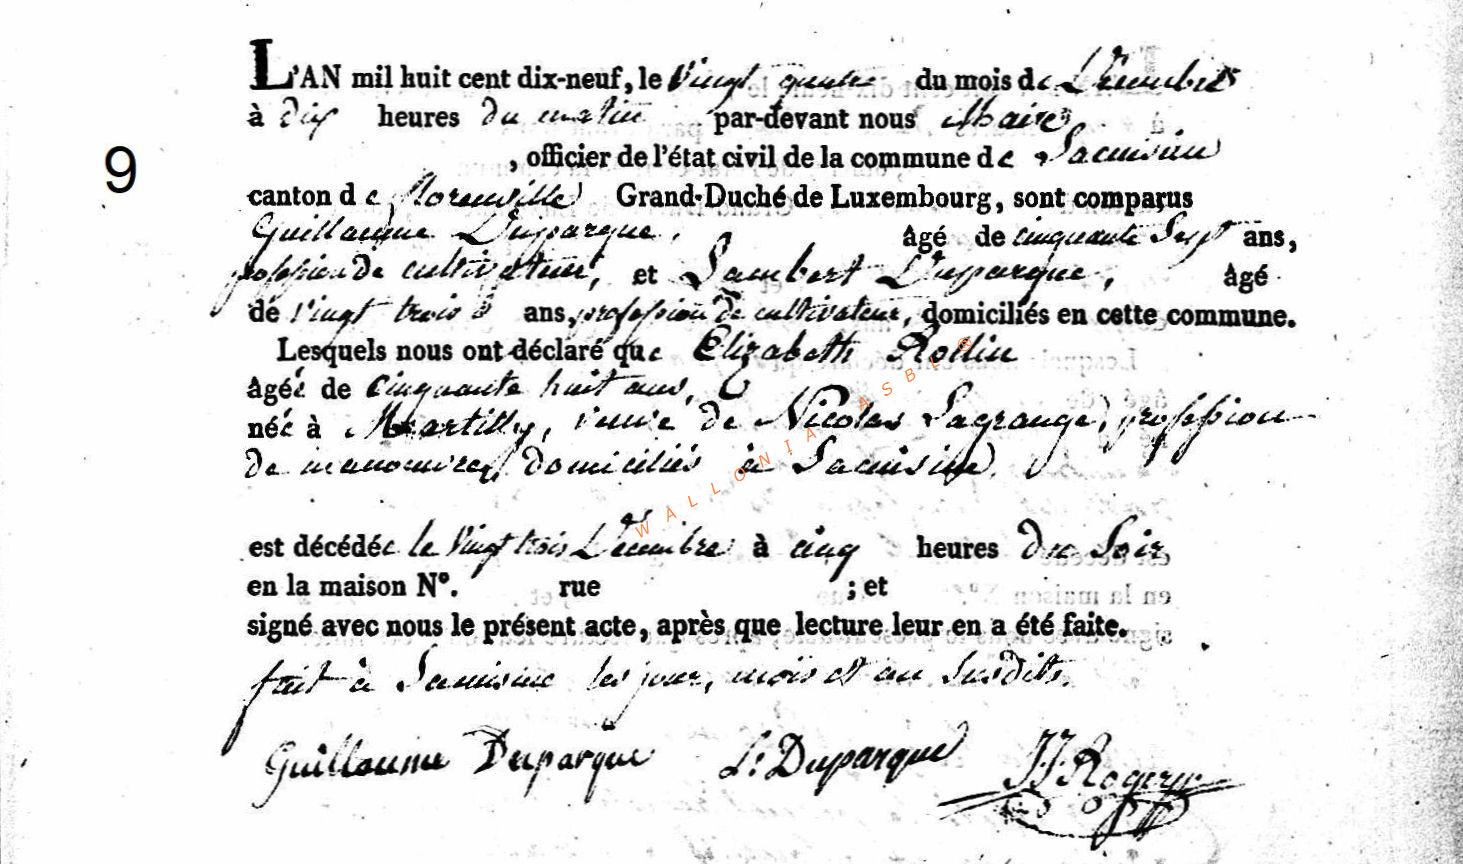 L'AN mil huit cent dix-neuf, le Vingt quatre du mois de Décembre
à dix heures du matin par-devant nous Maire
9
, officier de l'état civil de la commune de
canton de Florenville Grand-Duché de Luxembourg, sont comparus
Guillaume Duparque, âgé de cinquante Sept ans,
profession de cultivateur, et Lambert Duparque, âgé
de Vingt trois ans, profession de cultivateur, domiciliés en cette commune.
Lesquels nous ont déclaré que Elizabeth Rollin
âgée de cinquante huit ans,
née à Martilly, veuve de Nicolas Lagrange, profession
de manouvrier, domiciliés à
est décédée le Vingt trois Décembre à cinq heures du Soir
en la maison N°. rue ; et
signé avec nous le présent acte, après que lecture leur en a été faite.
fait à les jour, mois et an Susdits.
Guillaume Duparque L: Duparque J:J: Rogery
WALLONIA ASBL ®